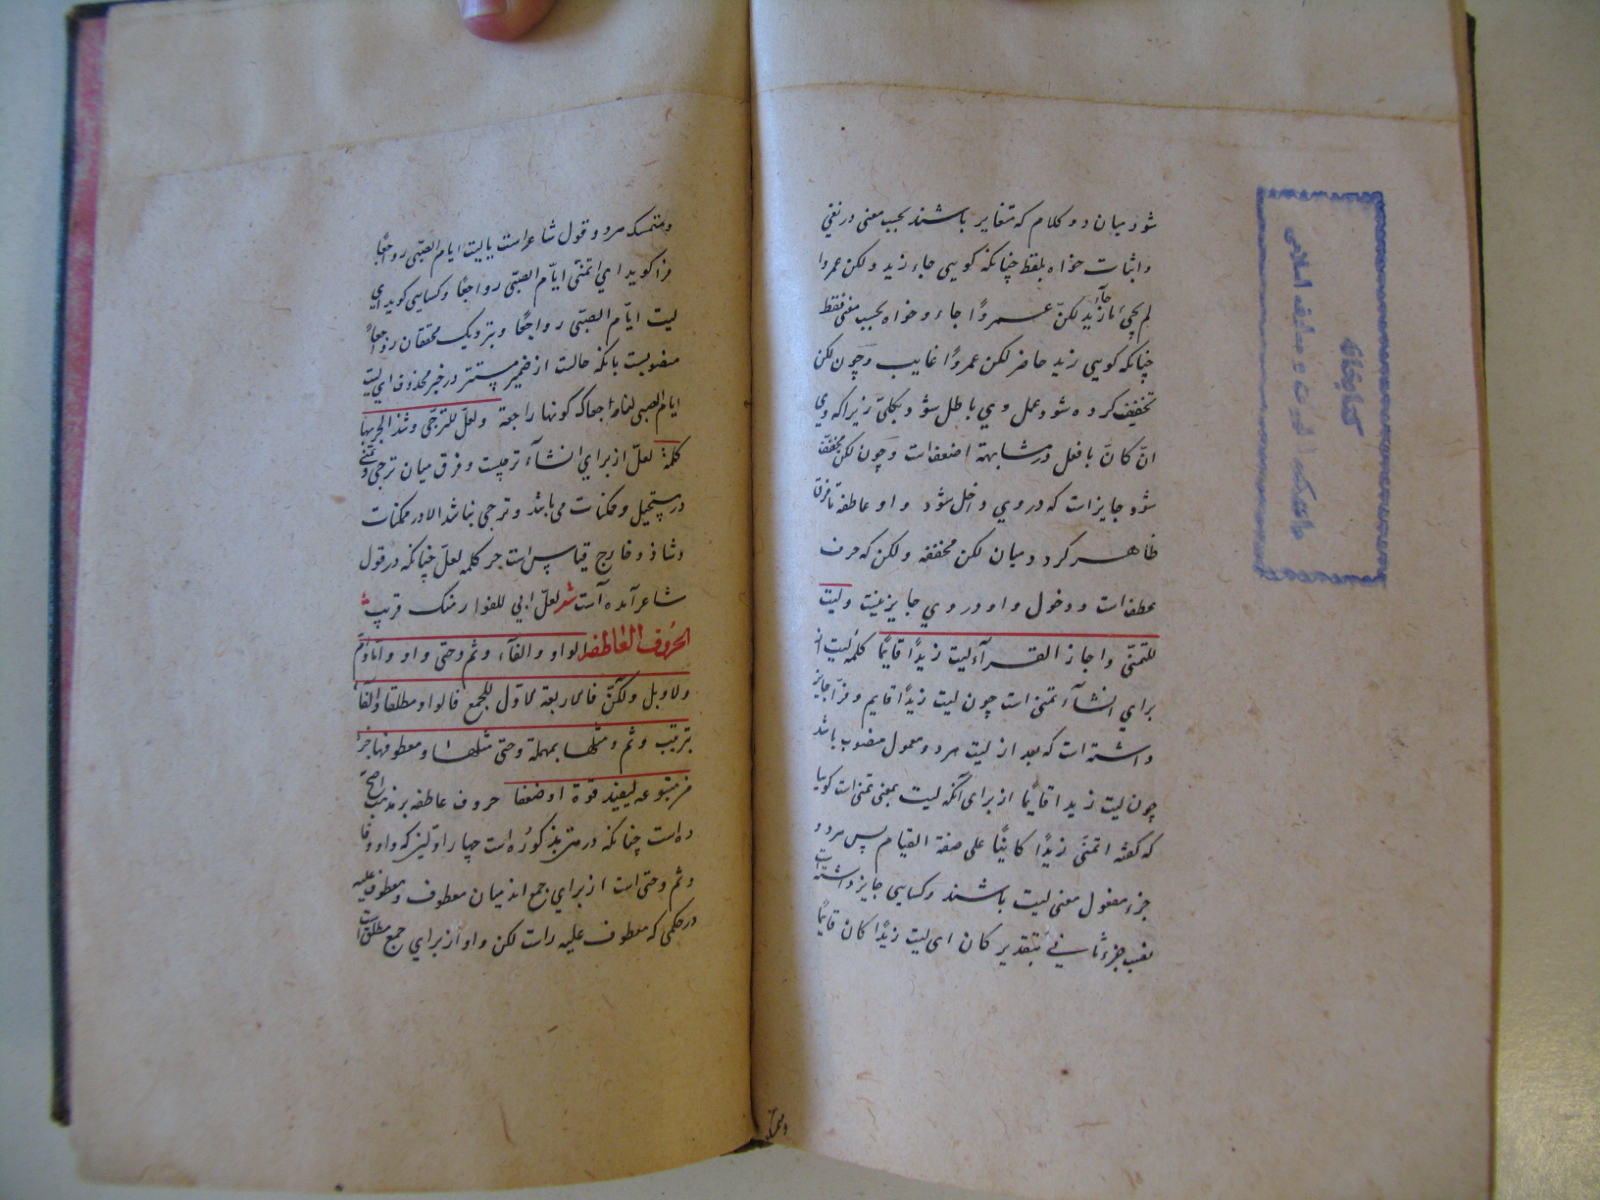 شود میان دو کلام که متغایر باشند بحسب معنی در نفی
و اثبات خواه بلفظ چنانکه کویی جاء زید و لکن عمروا
لم یجئ ما جاء زید لکنّ عمروًا جاء و خواه بحسب معنی فقط
چنانکه کویی زید حاضر لکن عمروًا غایب و چون لکن
تخفیف کرده شود عمل وی باطل شود بکلیّ زیرا که وی
انّ کانّ با فعل در مشابهة اضعفست و چون لکن مخففه
شود جایز است که در وی داخل شود واو عاطفه تا فرق
ظاهر کردد میان لکن مخففه و لکن که حرف
عطف است و دخول واو در وی جایز نیست و لیت
للتمنّی و اجاز الفرآء لیت زیدًا قایمًا کلمه لیت از
برای انشآء تمنی است چون لیت زیدًا قایم و فرّا جایز
داشته است که بعد از لیت هر دو معمول منصوب باشد
چون لیت زیدا قایمًا از برای آنکه لیت بمعنی تمنی است کویا
که کفته اتمنّی زیدًا کاینًا علی صفة القیام پس هر دو
جزء مفعول معنی لیت باشند و کسایی جایز داشته است
نصب جزء ثانی بتقدیر کان ای لیت زیدًا کان قایمًا
و متمسک هر دو قول شاعر است یا لیت ایام الصّبی رواجعًا
فرّا کوید ای اتمنّی ایّام الصبّی رواجعًا و کسایی کوید ای
لیت ایّام الصبّی رواجعًا و بنزدیک محققان رواجعًا
منصوبست بانکه حالست از ضمیر مستتر در خبر محذوف ای لیت
ایام الصبی لنا رواجعا که کونها راجعة و لعلّ للترجّی و شذ الجر بها
کلمهٔ لعلّ از برای انشآء ترجیست و فرق میان ترجی و تمنّی
در مستحیل و ممکنات می باشد و ترجی نباشد الا در ممکنات
و شاذ و خارج قیاس است جر کلمه لعلّ چنانکه در قول
شاعر آمده است شعر لعلّ ابی المغوار منک قریب
الحروف العاطفه الواو و الفآء و ثم و حتی و او و امّا و ام
و لا و بل و لکنّ فالاربعة الاول للجمع فالواو مطلقا و الفآء
بترتیب و ثم و مثلها بمهملة و حتی مثلها و معطوفها جزء
من متبوعه لیفید قوة او ضعفا حروف عاطفه بر مذهب اصحّ
ده است چنانکه در متن مذکور است چهار اولین که واو و فا
و ثم و حتی است از برای جمع اند میان معطوف و معطوف علیه
در حکمی که معطوف علیه راست لکن واو از برای جمع مطلق است
کتابخانه
دانشکده الهیات و معارف اسلامی